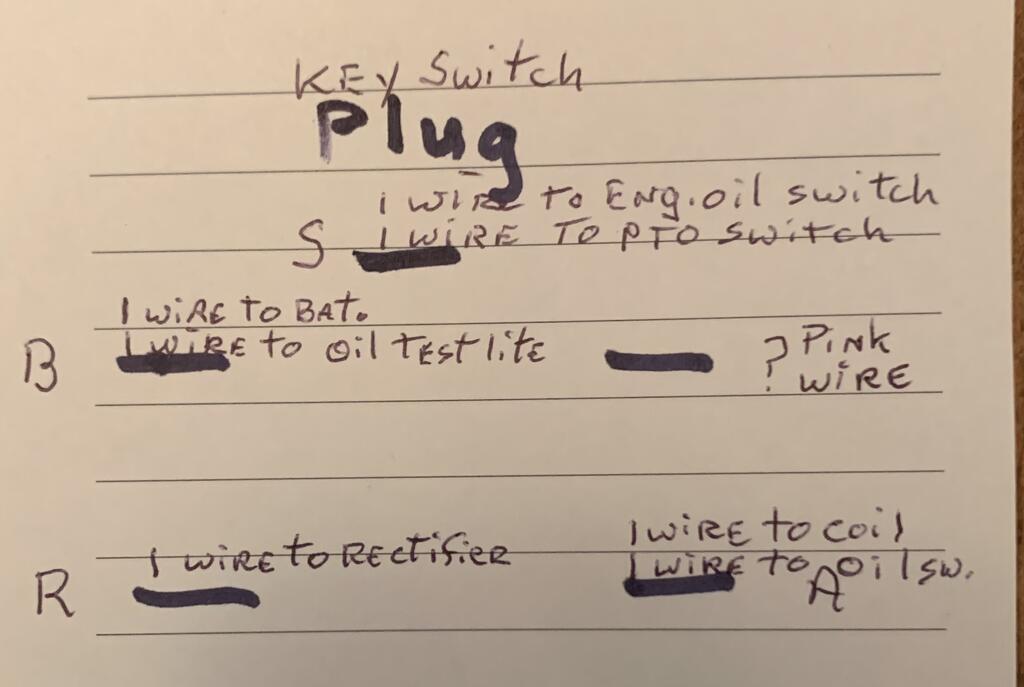 KEY Switch
Plug
1 WIRE to ENG. oil switch
S 1 WIRE TO PTO SWitch
1 WiRE TO BAT.
B 1 WIRE to oil TEST litE
? PiNK
WiRE
1 WiRE to coil
R 1 WiRE to RECtifiER
1 WIRE to oil sw.
A